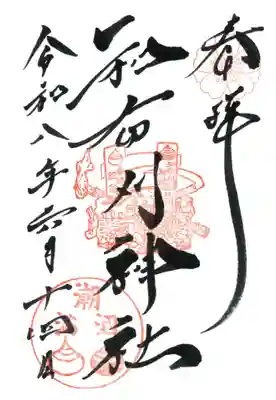 奉拝
和布刈神社
令和八年六月十四日